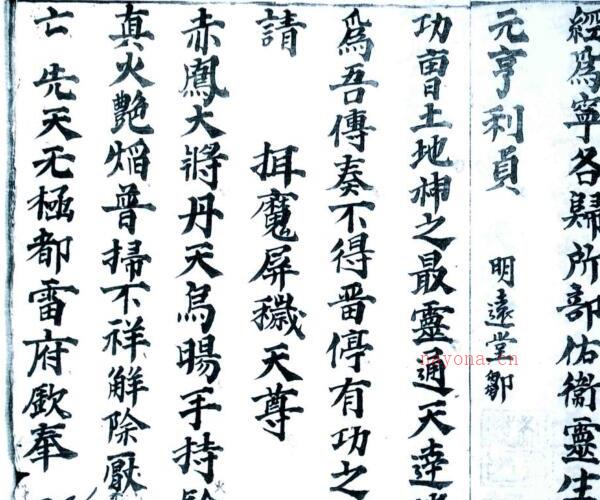 經爲寧各歸所部佑衞靈生
元亨利貞 明遠堂鄒
功曹土地神之最靈通天達
爲吾傳奏不得畱停有功之
請 𢬿魔屏穢天尊
赤鳳大將丹天烏暘手持
真火艷焰普掃不祥解除厭
亡 先天无極都雷府欽奉
nayona.cn